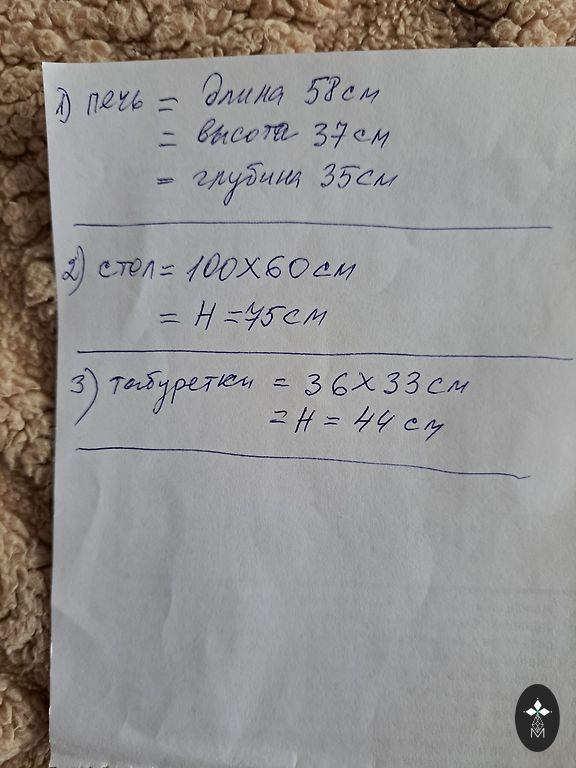 1) печь = длина 58 см
= высота 37 см
= глубина 35 см
2) стол = 100 х 60 см
= H = 75 см
3) табуретки = 36 х 33 см
= H = 44 см
M